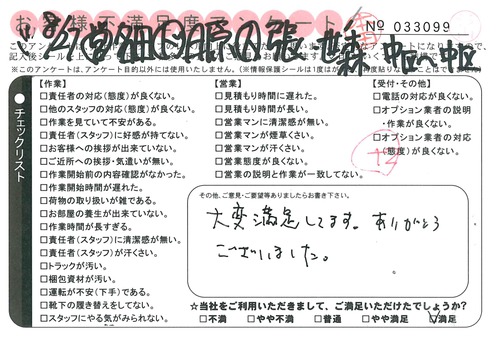 お客様満足度アンケート
№ 033099
【作業】
□責任者の対応(態度)が良くない。
□他のスタッフの対応(態度)が良くない。
□作業を見ていて不安がある。
□責任者(スタッフ)に好感が持てない。
□お客様への挨拶が出来ていない。
□ご近所への挨拶・気遣いが無い。
□作業開始前の内容確認がなかった。
□作業開始時間が遅れた。
□荷物の取り扱いが雑である。
□お部屋の養生が出来ていない。
□作業時間が長すぎる。
□責任者(スタッフ)に清潔感が無い。
□責任者(スタッフ)が汗くさい。
□トラックが汚い。
□梱包資材が汚い。
□運転が不安(下手)である。
□靴下の履き替えをしてない。
□スタッフにやる気がみられない。
【営業】
□見積もり時間に遅れた。
□見積もり時間が長い。
□営業マンに清潔感が無い。
□営業マンが煙草くさい。
□営業マンが汗くさい。
□営業態度が良くない。
□営業の説明と作業が一致してない。
【受付・その他】
□電話の対応が良くない。
□オプション業者の説明
・作業が良くない。
□オプション業者の対応
(態度)が良くない。
チェックリスト
その他、ご意見・ご要望等ありましたらお書き下さい。
大変満足してます。ありがとう
ございました。
☆当社をご利用いただきまして、ご満足いただけたでしょうか?
□不満 □やや不満 □普通 □やや満足 ☑満足